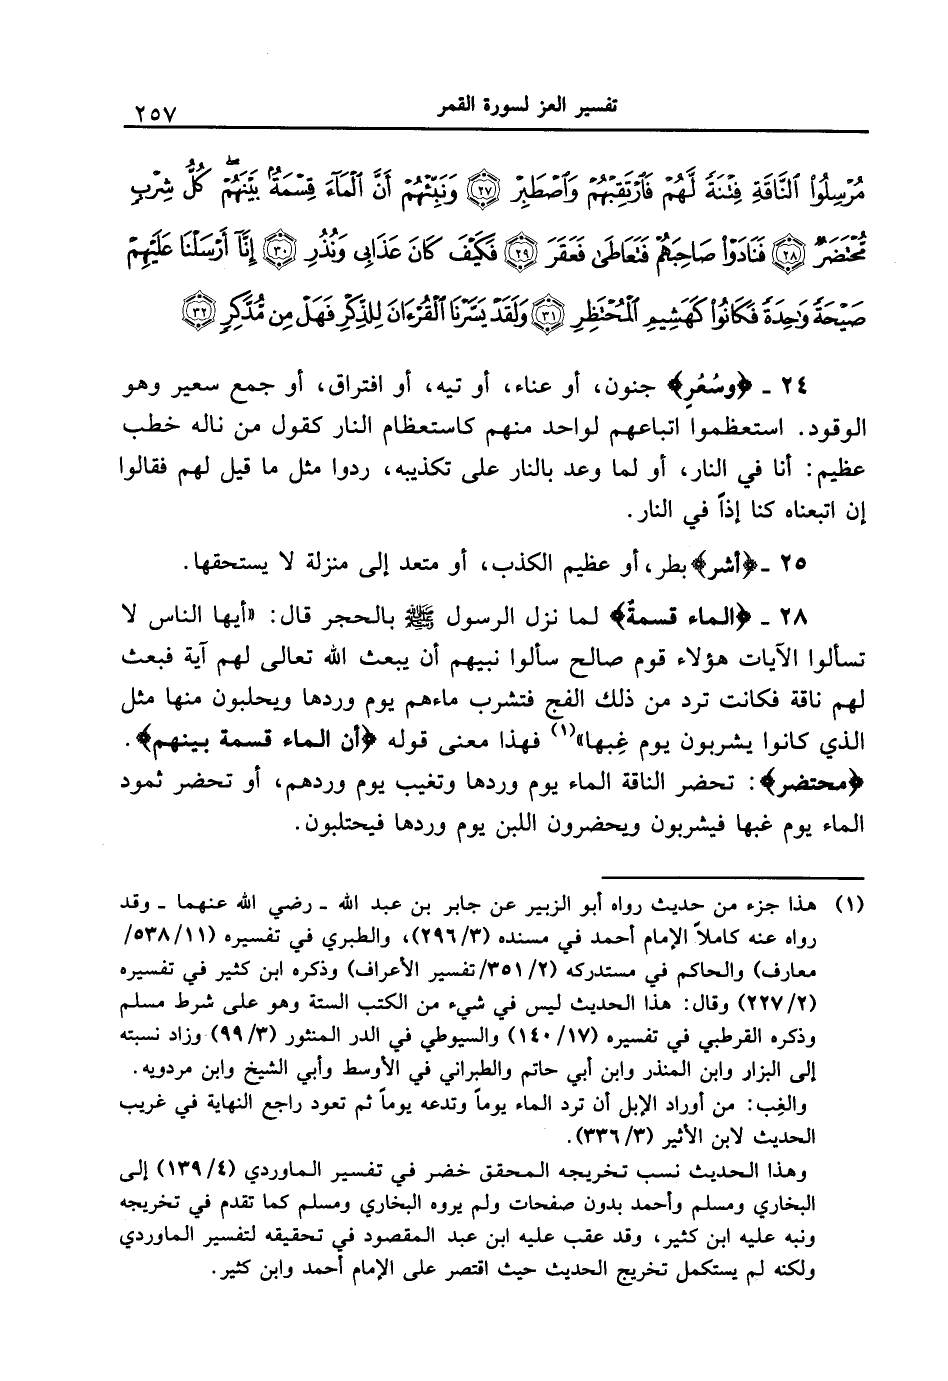 تفسير العز لسورة القمر
٢٥٧
مُرْسِلُوا۟ ٱلنَّاقَةِ فِتْنَةً لَّهُمْ فَٱرْتَقِبْهُمْ وَٱصْطَبِرْ ﴿٢٧﴾ وَنَبِّئْهُمْ أَنَّ ٱلْمَآءَ قِسْمَةٌۢ بَيْنَهُمْ ۖ كُلُّ شِرْبٍ
مُّحْتَضَرٌ ﴿٢٨﴾ فَنَادَوْا۟ صَاحِبَهُمْ فَتَعَاطَىٰ فَعَقَرَ ﴿٢٩﴾ فَكَيْفَ كَانَ عَذَابِى وَنُذُرِ ﴿٣٠﴾ إِنَّآ أَرْسَلْنَا عَلَيْهِمْ
صَيْحَةً وَٰحِدَةً فَكَانُوا۟ كَهَشِيمِ ٱلْمُحْتَظِرِ ﴿٣١﴾ وَلَقَدْ يَسَّرْنَا ٱلْقُرْءَانَ لِلذِّكْرِ فَهَلْ مِن مُّدَّكِرٍ ﴿٣٢﴾
٢٤ ـ ﴿وسُعُرٍ﴾ جنون، أو عناء، أو تيه، أو افتراق، أو جمع سعير وهو
الوقود. استعظموا اتباعهم لواحد منهم كاستعظام النار كقول من ناله خطب
عظيم: أنا في النار، أو لما وعد بالنار على تكذيبه، ردوا مثل ما قيل لهم فقالوا
إن اتبعناه كنا إذاً في النار.
٢٥ ـ ﴿أشر﴾ بطر، أو عظيم الكذب، أو متعد إلى منزلة لا يستحقها.
٢٨ ـ ﴿الماء قسمةٌ﴾ لما نزل الرسول ﷺ بالحجر قال: «أيها الناس لا
تسألوا الآيات هؤلاء قوم صالح سألوا نبيهم أن يبعث الله تعالى لهم آية فبعث
لهم ناقة فكانت ترد من ذلك الفج فتشرب ماءهم يوم وردها ويحلبون منها مثل
الذي كانوا يشربون يوم غِبها»(١) فهذا معنى قوله ﴿أن الماء قسمة بينهم﴾.
﴿محتضر﴾: تحضر الناقة الماء يوم وردها وتغيب يوم وردهم، أو تحضر ثمود
الماء يوم غبها فيشربون ويحضرون اللبن يوم وردها فيحتلبون.
(١) هذا جزء من حديث رواه أبو الزبير عن جابر بن عبد الله ـ رضي الله عنهما ـ وقد
رواه عنه كاملاً الإمام أحمد في مسنده (٢٩٦/٣)، والطبري في تفسيره (٥٣٨/١١/
معارف) والحاكم في مستدركه (٣٥١/٢/تفسير الأعراف) وذكره ابن كثير في تفسيره
(٢٢٧/٢) وقال: هذا الحديث ليس في شيء من الكتب الستة وهو على شرط مسلم
وذكره القرطبي في تفسيره (١٤٠/١٧) والسيوطي في الدر المنثور (٩٩/٣) وزاد نسبته
إلى البزار وابن المنذر وابن أبي حاتم والطبراني في الأوسط وأبي الشيخ وابن مردويه.
والغِب: من أوراد الإبل أن ترد الماء يوماً وتدعه يوماً ثم تعود راجع النهاية في غريب
الحديث لابن الأثير (٣٣٦/٣).
وهذا الحديث نسب تخريجه المحقق خضر في تفسير الماوردي (١٣٩/٤) إلى
البخاري ومسلم وأحمد بدون صفحات ولم يروه البخاري ومسلم كما تقدم في تخريجه
ونبه عليه ابن كثير، وقد عقب عليه ابن عبد المقصود في تحقيقه لتفسير الماوردي
ولكنه لم يستكمل تخريج الحديث حيث اقتصر على الإمام أحمد وابن كثير.